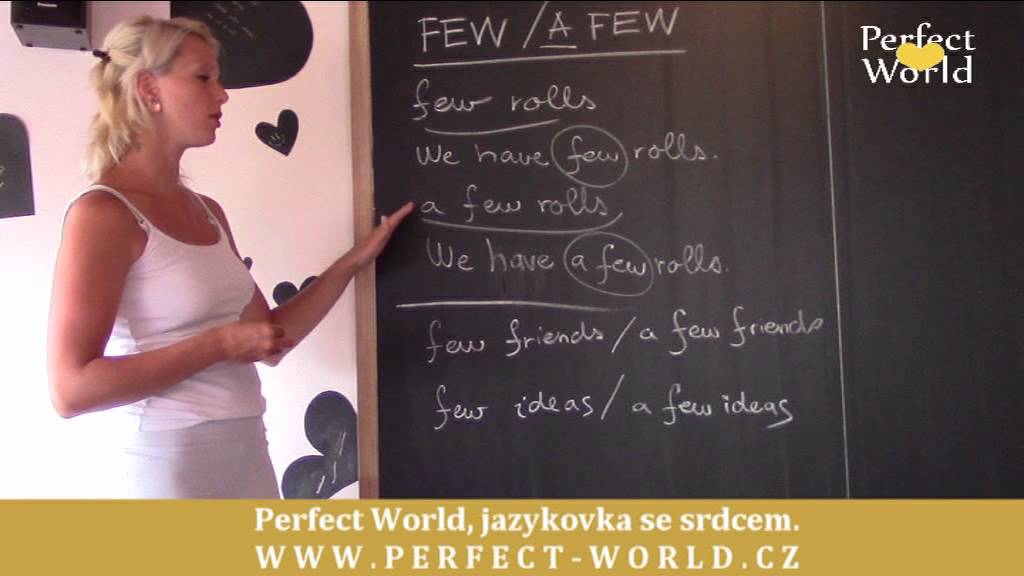 FEW / A FEW
few rolls
We have few rolls.
a few rolls
We have a few rolls.
few friends / a few friends
few ideas / a few ideas
Perfect
World
Perfect World, jazykovka se srdcem.
WWW.PERFECT-WORLD.CZ